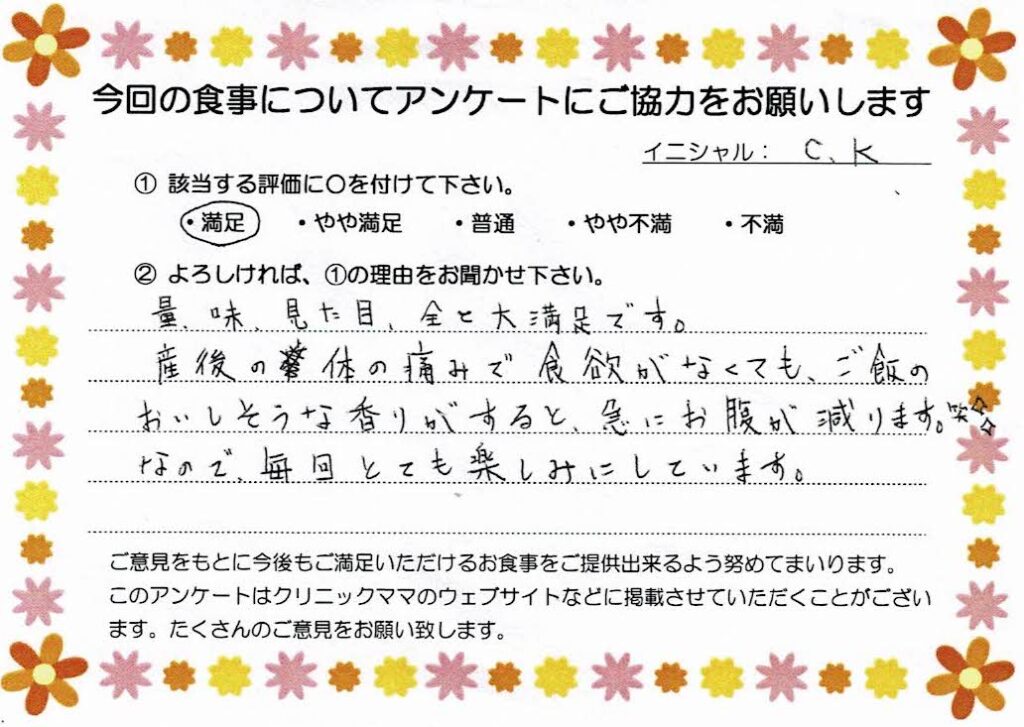 今回の食事についてアンケートにご協力をお願いします
イニシャル： C、K
① 該当する評価に〇を付けて下さい。
・満足 ・やや満足 ・普通 ・やや不満 ・不満
② よろしければ、①の理由をお聞かせ下さい。
量、味、見た目、全と大満足です。
産後の体の痛みで食欲がなくても、ご飯の
おいしそうな香りがすると、急にお腹が減ります。笑
なので、毎回とても楽しみにしています。
ご意見をもとに今後もご満足いただけるお食事をご提供出来るよう努めてまいります。
このアンケートはクリニックママのウェブサイトなどに掲載させていただくことがござい
ます。たくさんのご意見をお願い致します。